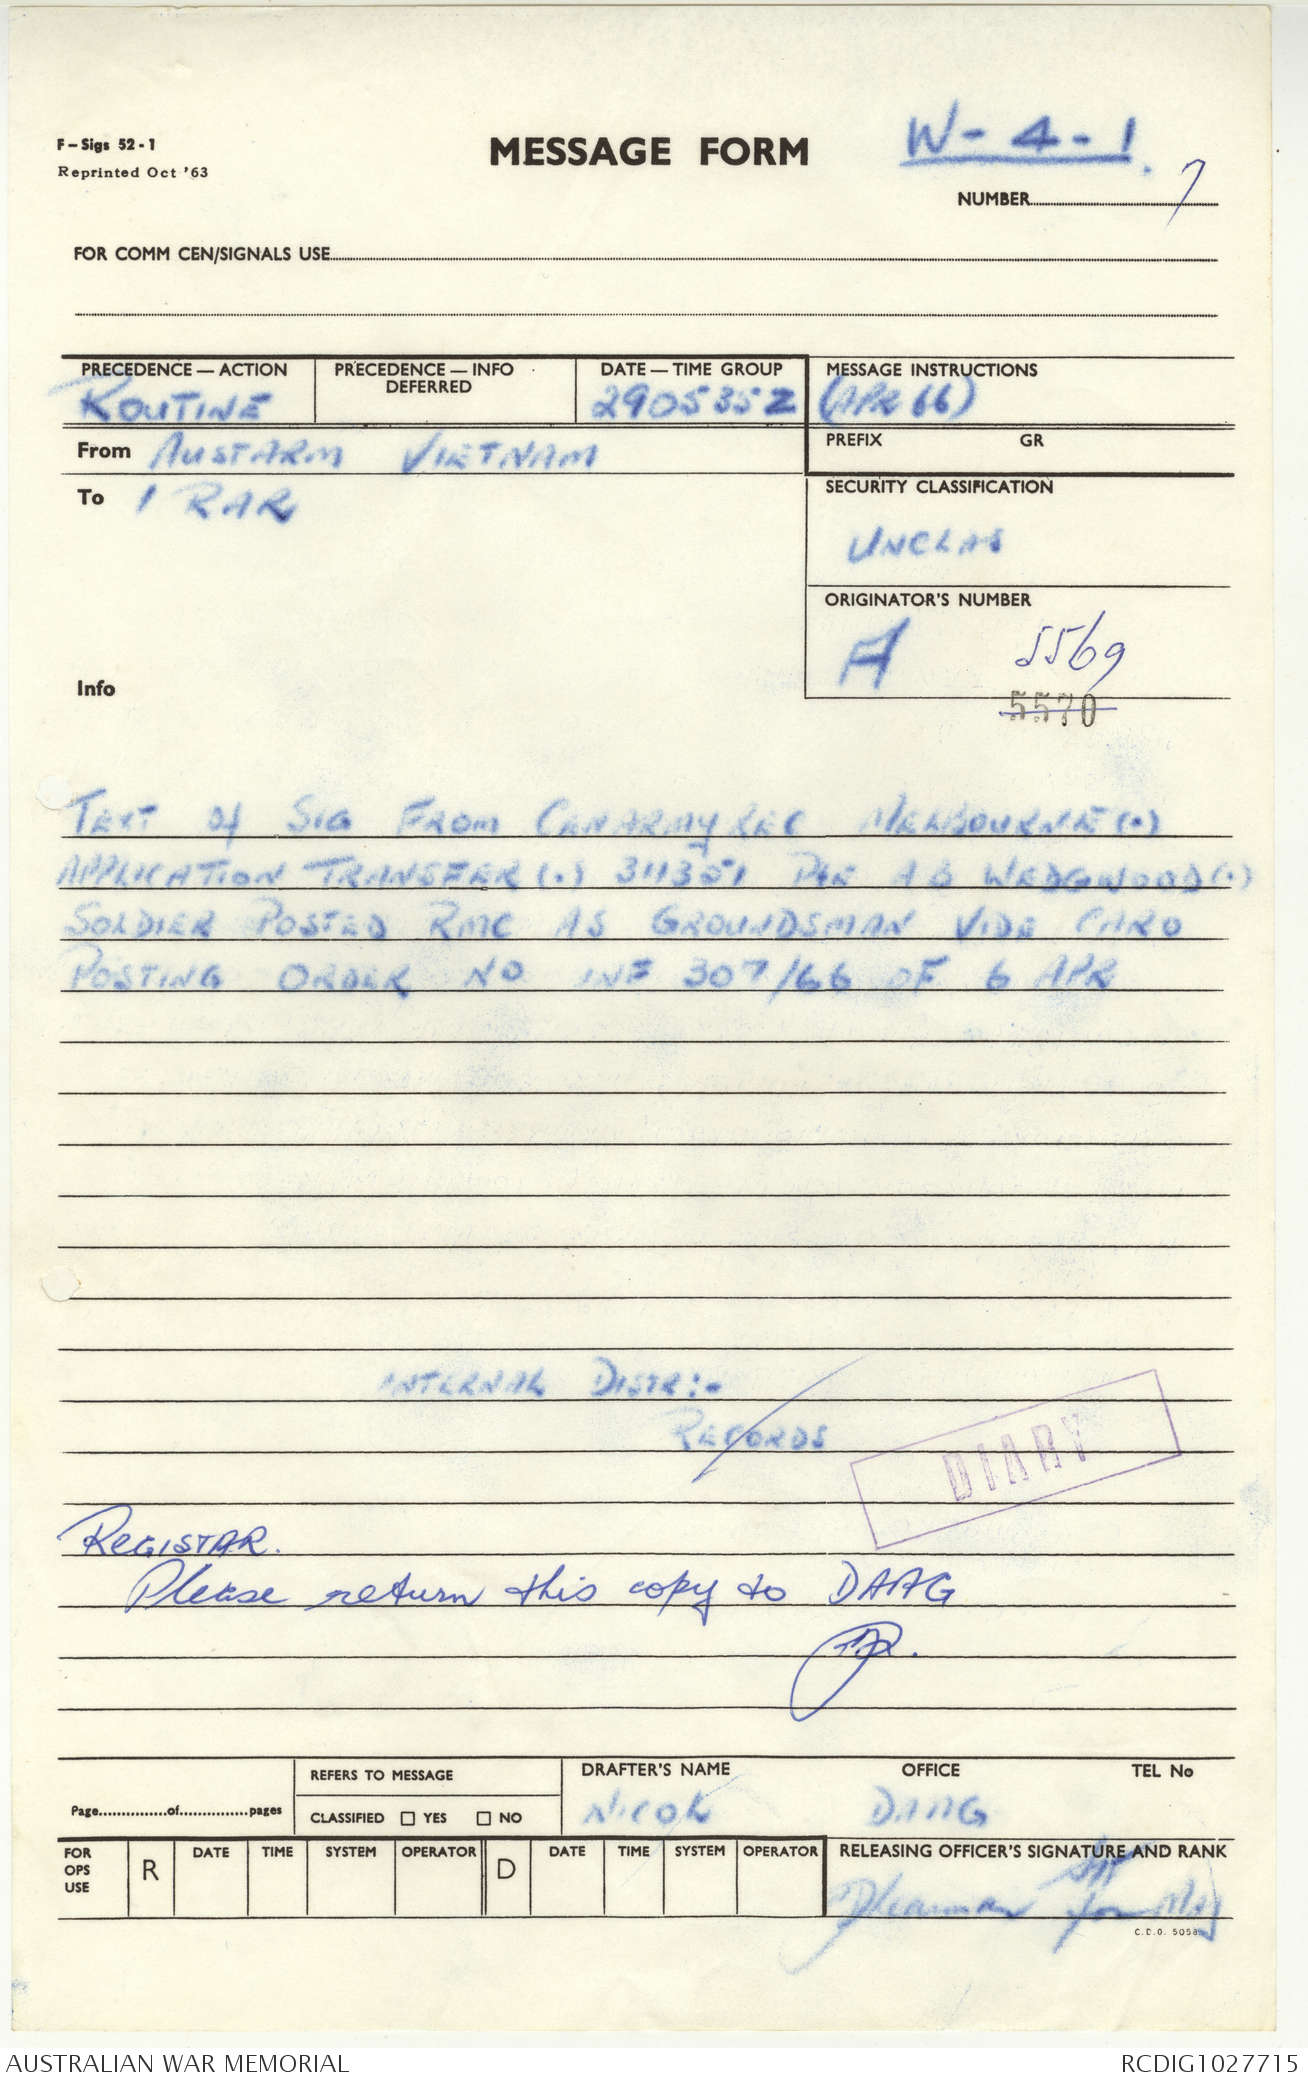 F-Sigs 52-1
Reprinted Oct '63
MESSAGE FORM
W-4-1.
NUMBER 7
FOR COMM CEN/SIGNALS USE
PRECEDENCE — ACTION
ROUTINE
PRECEDENCE — INFO
DEFERRED
DATE — TIME GROUP
290535Z
MESSAGE INSTRUCTIONS
(APR 66)
From AUSTARM VIETNAM
PREFIX GR
To 1 RAR
SECURITY CLASSIFICATION
UNCLAS
ORIGINATOR'S NUMBER
A 5569
5570
Info
TEXT OF SIG FROM CENARMYREC MELBOURNE (.)
APPLICATION TRANSFER (.) 311351 PTE A B WEDGWOOD (.)
SOLDIER POSTED RMC AS GROUNDSMAN VIDE CARO
POSTING ORDER NO INF 307/66 OF 6 APR
INTERNAL DISTR:-
RECORDS
DIARY
REGISTAR.
Please return this copy to DAAG
Page of pages
REFERS TO MESSAGE
CLASSIFIED YES NO
DRAFTER'S NAME
NICOL
OFFICE
DAAG
TEL No
FOR
OPS
USE
R DATE TIME SYSTEM OPERATOR D DATE TIME SYSTEM OPERATOR
RELEASING OFFICER'S SIGNATURE AND RANK
for Maj
AUSTRALIAN WAR MEMORIAL
RCDIG1027715